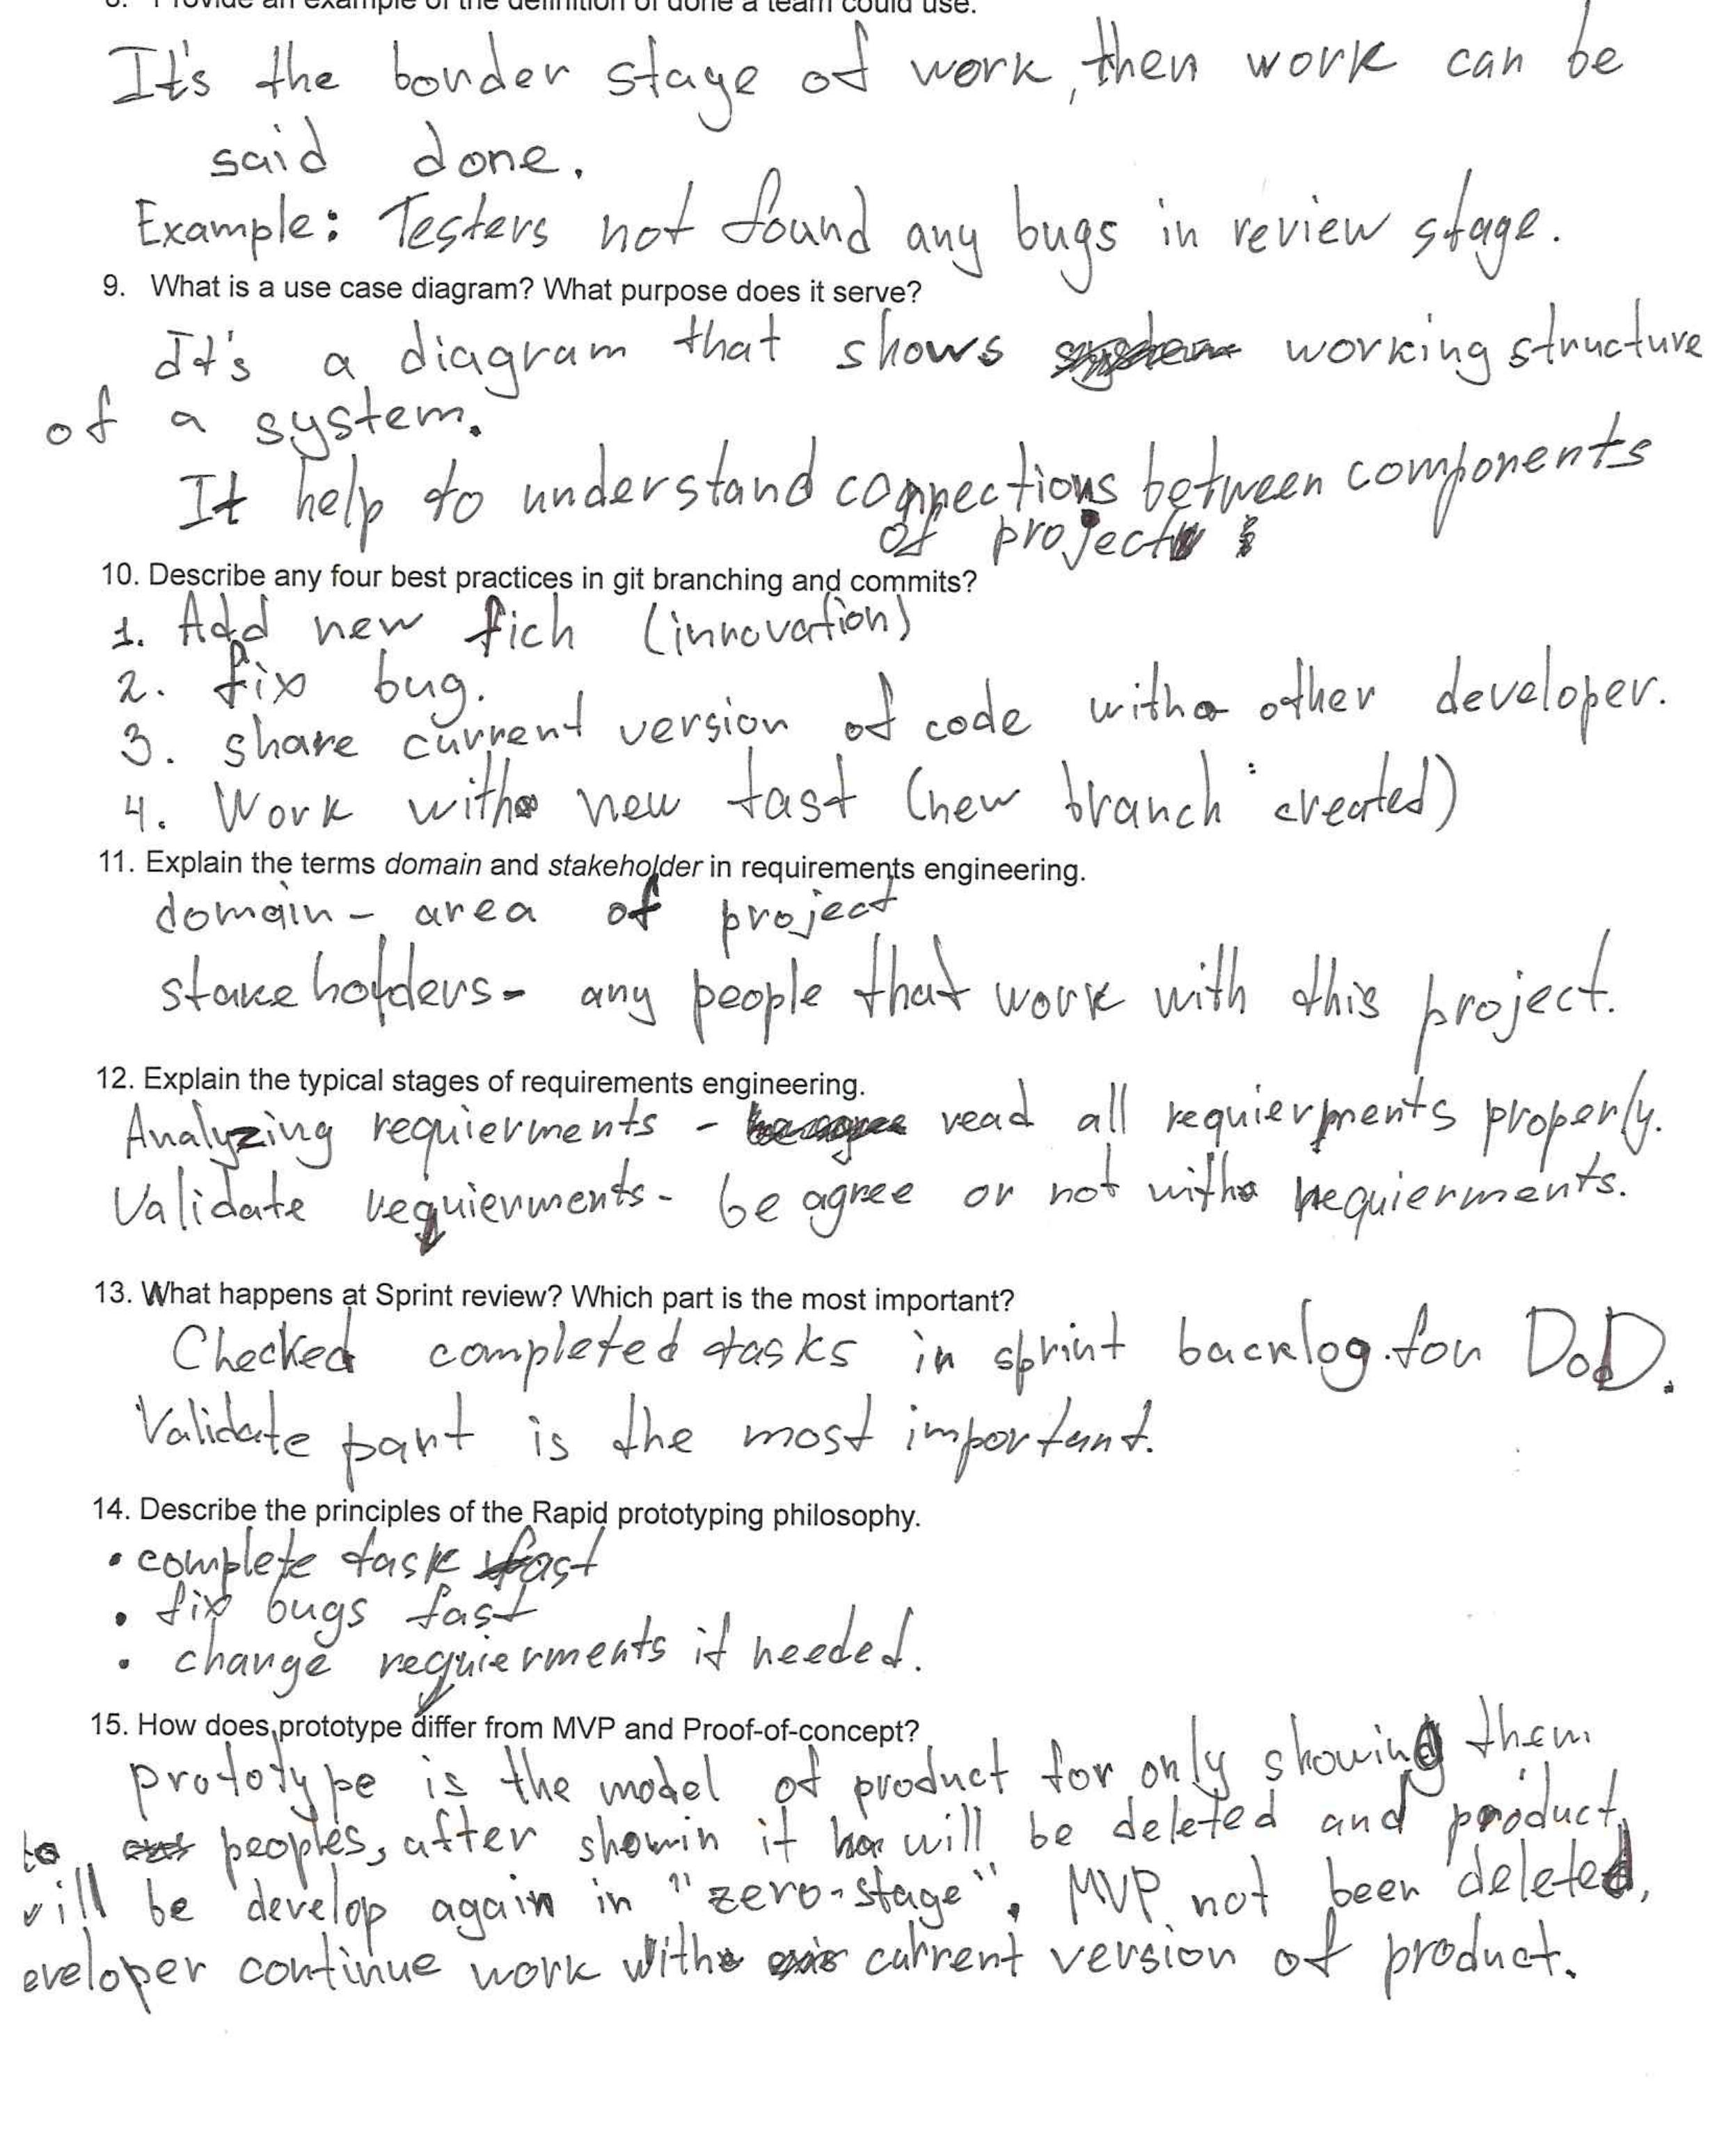 8. Provide an example of the definition of done a team could use.
It's the border stage of work, then work can be
said done.
Example: Testers not found any bugs in review stage.
9. What is a use case diagram? What purpose does it serve?
It's a diagram that shows working structure
of a system.
It help to understand connections between components
of project
10. Describe any four best practices in git branching and commits?
1. Add new fich (innovation)
2. fix bug.
3. share current version of code with other developer.
4. Work with new tast (new branch created)
11. Explain the terms domain and stakeholder in requirements engineering.
domain - area of project
stakeholders - any people that work with this project.
12. Explain the typical stages of requirements engineering.
Analyzing requierments - read all requierments properly.
Validate requierments - be agree or not with requierments.
13. What happens at Sprint review? Which part is the most important?
Checked completed tasks in sprint backlog for DoD.
Validate part is the most important.
14. Describe the principles of the Rapid prototyping philosophy.
• complete task fast
• fix bugs fast
• change requierments if needed.
15. How does prototype differ from MVP and Proof-of-concept?
prototype is the model of product for only showing them
to peoples, after showin it will be deleted and product
will be develop again in "zero-stage". MVP not been deleted,
eveloper continue work with current version of product.